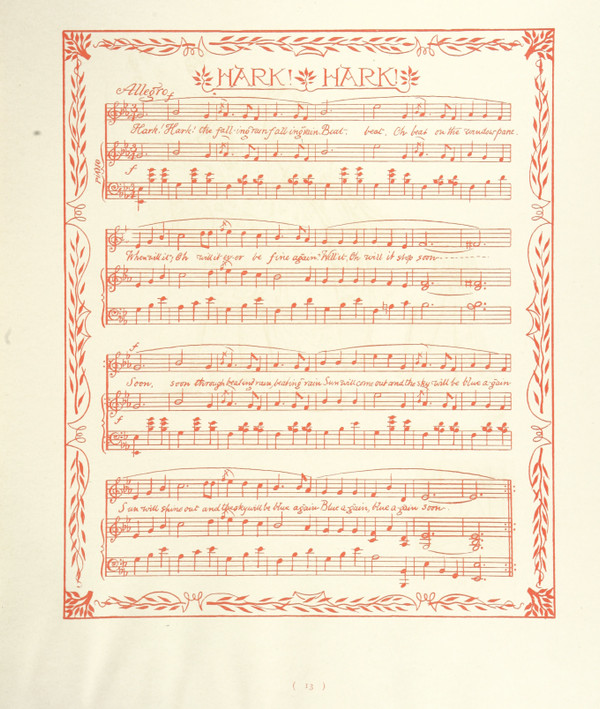 HARK! HARK!
Allegro f
Hark! Hark! the fall-ing rain falling rain. Beat, beat, Oh beat on the window pane.
piano
f
When will it, Oh will it ev-er be fine again? Will it, Oh will it stop soon
f
Soon, soon through beating rain, beating rain Sun will come out and the sky will be blue a-gain
f
Sun will shine out and the sky will be blue again Blue again, blue again soon.
( 13 )